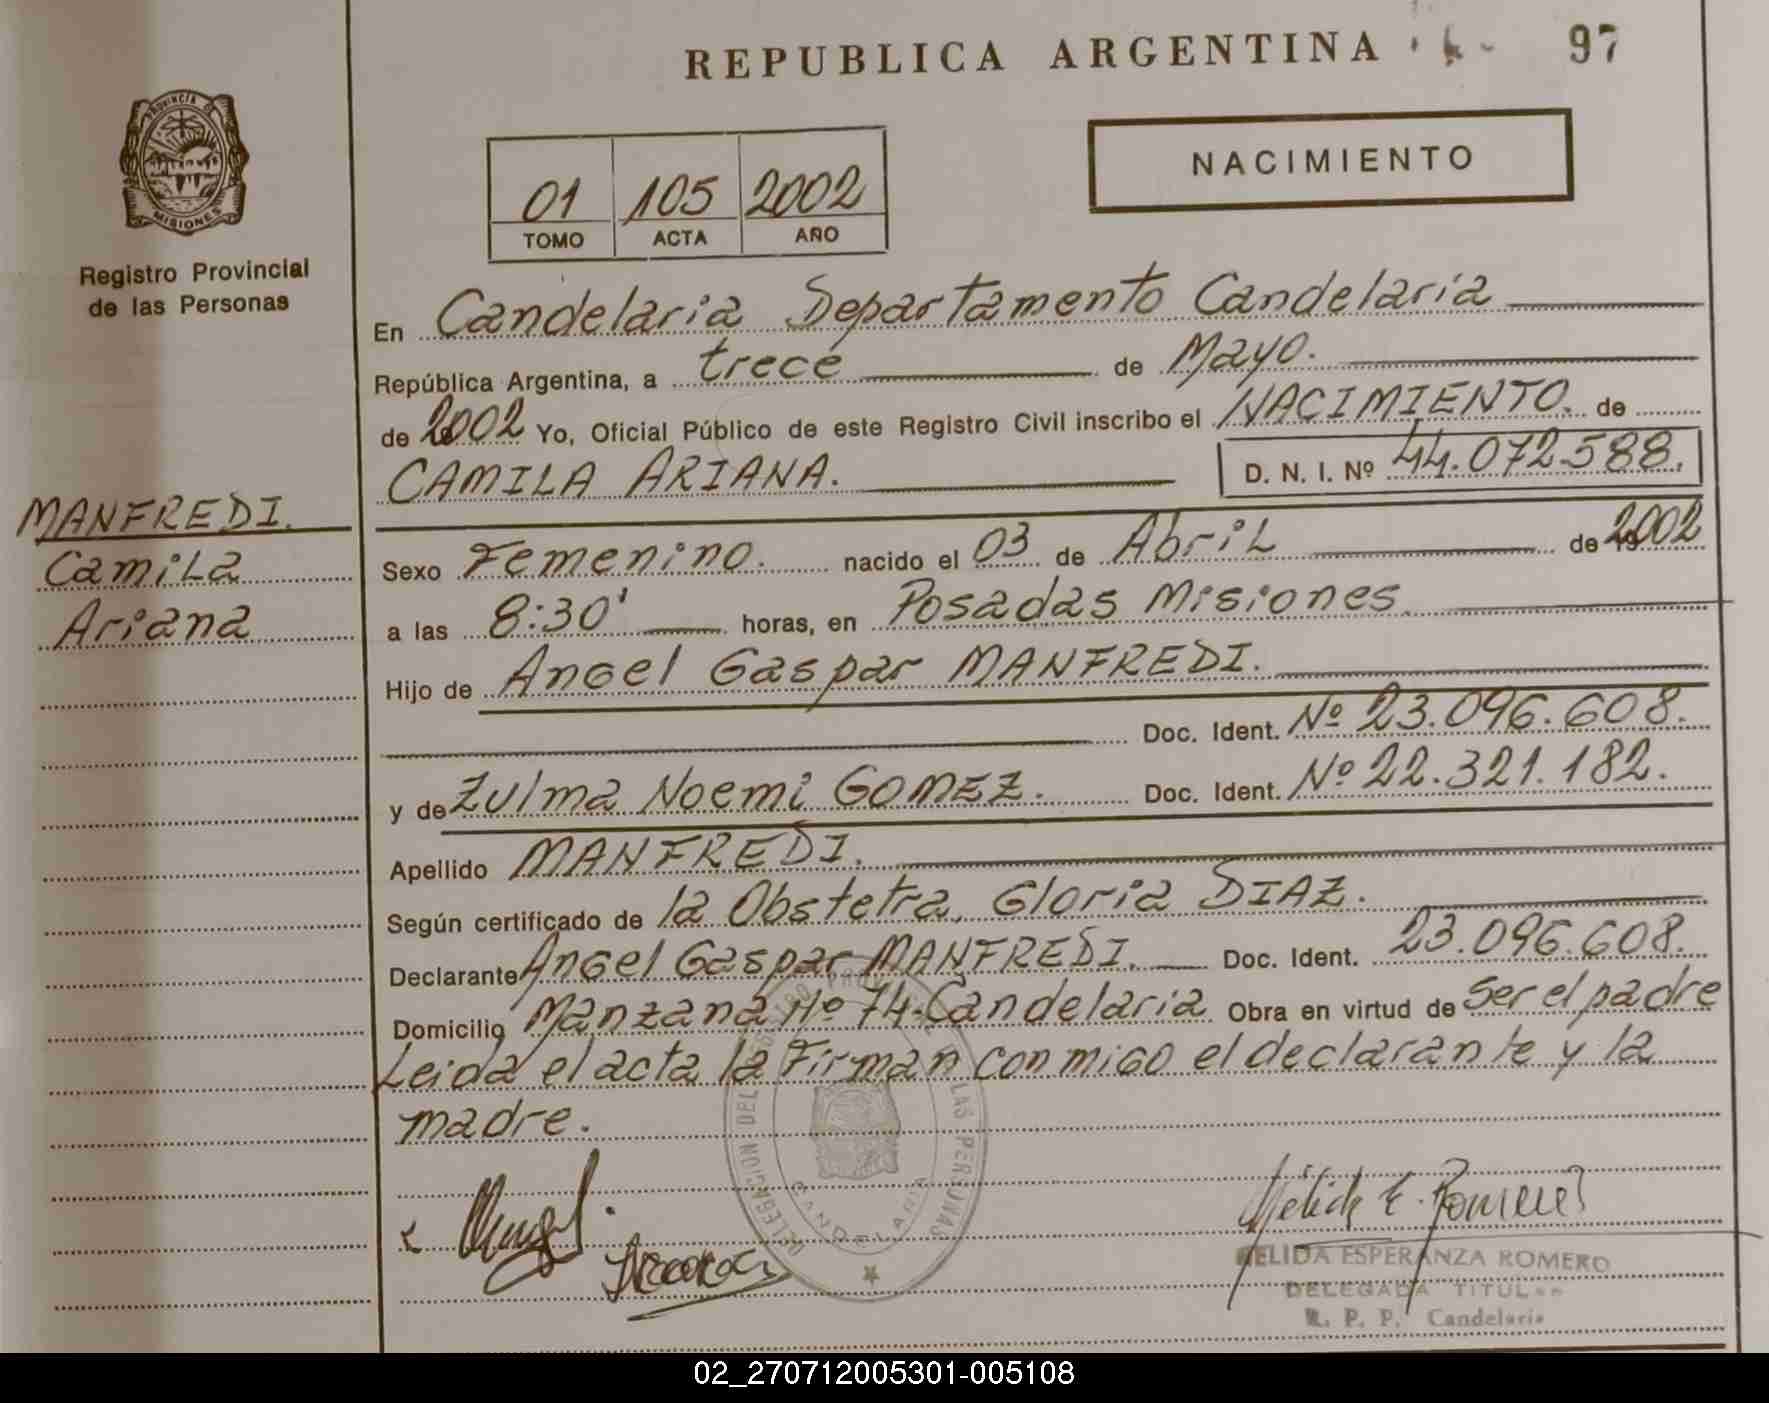 REPUBLICA ARGENTINA
97
PROVINCIA DE
MISIONES
Registro Provincial
de las Personas
01 105 2002
TOMO ACTA AÑO
NACIMIENTO
En Candelaria Departamento Candelaria
República Argentina, a trece de Mayo.
de 2002 Yo, Oficial Público de este Registro Civil inscribo el NACIMIENTO. de
CAMILA ARIANA. D. N. I. Nº 44.072.588.
MANFREDI.
Camila
Ariana
Sexo Femenino. nacido el 03 de Abril de 2002
a las 8:30' horas, en Posadas Misiones.
Hijo de Angel Gaspar MANFREDI.
Doc. Ident. Nº 23.096.608.
y de Zulma Noemi GOMEZ. Doc. Ident. Nº 22.321.182.
Apellido MANFREDI.
Según certificado de la Obstetra, Gloria DIAZ.
Declarante Angel Gaspar MANFREDI. Doc. Ident. 23.096.608.
Domicilio Manzana Nº 74-Candelaria Obra en virtud de Ser el padre
Leida el acta la Firman conmigo el declarante y la
madre.
DELEGACION DEL REGISTRO PROVINCIAL DE LAS PERSONAS
CANDELARIA
NELIDA ESPERANZA ROMERO
DELEGADA TITULAR
R. P. P. Candelaria
02_270712005301-005108